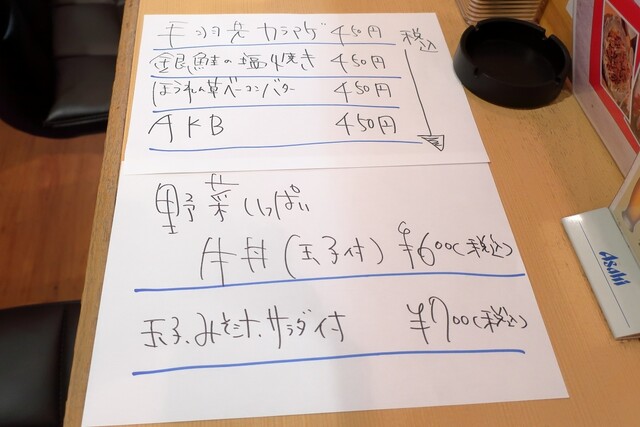 手羽先カラアゲ 450円
税込
銀鮭の塩焼き 450円
ほうれん草ベーコンバター 450円
AKB 450円
野菜いっぱい
牛丼(玉子付) ¥600(税込)
玉子、みそ汁、サラダ付 ¥700(税込)
Asahi